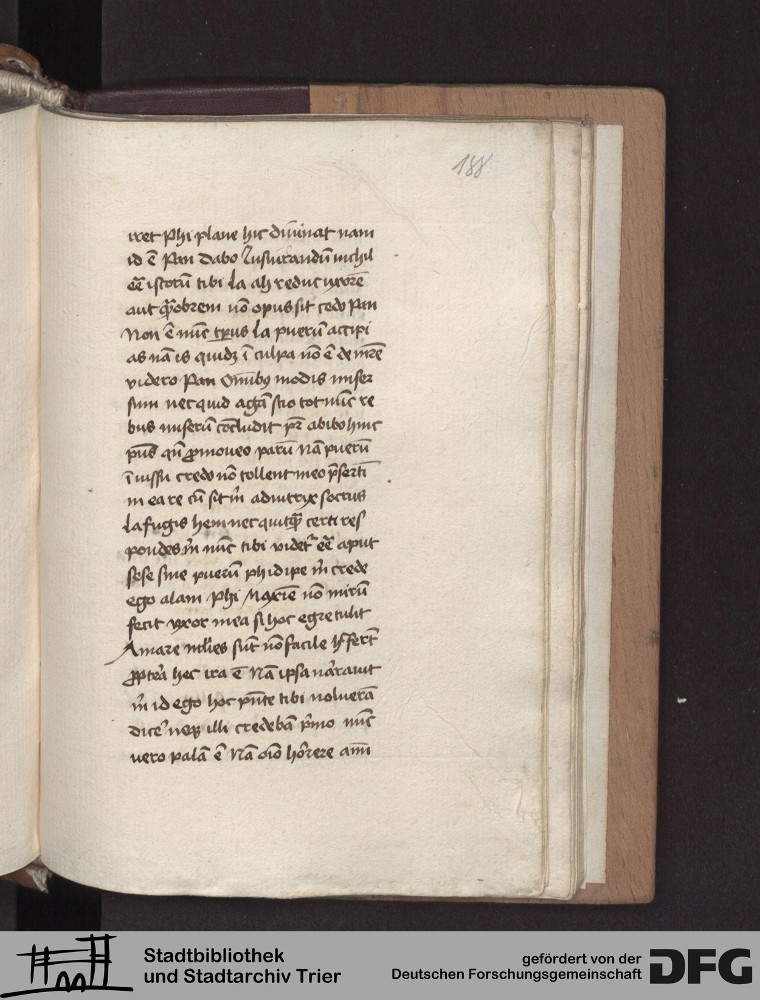 188
ixet Phi plane hic diuinat nam
id ē Pan dabo Iusiurandū nichil
eē istorū tibi La ah reduc uxorē
aut q̄mobrem nō opus sit cedo Pan
Non ē nūc tp̄us La puerū accipi
as nā is quidē ī culpa nō ē de mr̄e
videro Pan Omībꝫ modis miser
sum nec quid agā scio tot nūc re
bus miserū cōcludit pr̄ abibo hinc
p̄ns qn̄ ꝓmoueo parū Nā puerū
ī iussu credo nō tollent meo p̄sertī
in ea re cū sit m̄ adiutrix socrus
La fugis hem nec quitq̄ certi res
pondes m̄ nūc tibi videt᷑ eē aput
sese sine puerū phidipe m̄ crede
ego alam Phi Maxīe nō mirū
fecit uxor mea si hoc egre tulit
Amare ml̄ies sūt nō facile h̄ fert
ꝓptēa hec ira ē Nā ipsa narrauit
m̄ id ego hoc p̄nte tibi nolueram
dicē neqꝫ illi credebā p̄mo nūc
vero palā ē Nā oīo hōrere amī
Stadtbibliothek
und Stadtarchiv Trier
gefördert von der
Deutschen Forschungsgemeinschaft
DFG